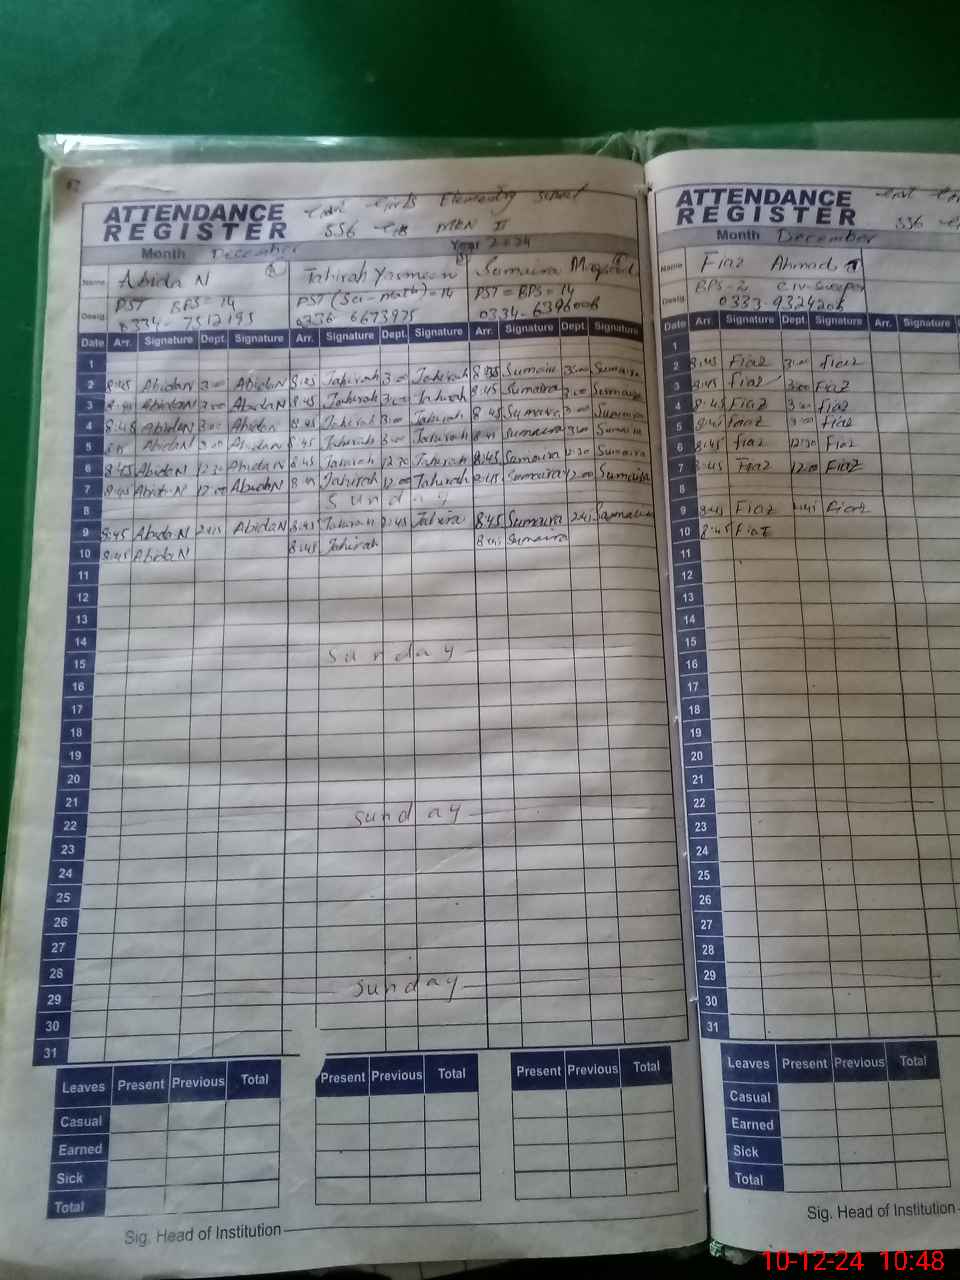 ATTENDANCE REGISTER
Girls Elementary School
336 MKN II
Month December Year 2024
Name Abida N Tahirah Yasmeen Sumaira Maqsood
Desig. PST BPS = 14 PST (Sci-math) = 14 PST = BPS = 14
0334-7512195 0336 6673975 0334-6396006
Date Arr. Signature Dept. Signature Arr. Signature Dept. Signature Arr. Signature Dept. Signature
1
2 8:45 AbidaN 3:00 AbidaN 8:45 Tahirah 3:00 Tahirah 8:45 Sumaira 3:00 Sumaira
3 8:45 AbidaN 3:00 AbidaN 8:45 Tahirah 3:00 Tahirah 8:45 Sumaira 3:00 Sumaira
4 8:45 AbidaN 3:00 Abida 8:45 Tahirah 3:00 Tahirah 8:45 Sumaira 3:00 Sumaira
5 AbidaN 3:00 AbidaN 8:45 Tahirah 3:00 Tahirah 8:45 Sumaira 3:00 Sumaira
6 8:45 AbidaN 12:30 AbidaN 8:45 Tahirah 12:30 Tahirah 8:45 Sumaira 12:30 Sumaira
7 8:45 AbidaN 12:00 AbidaN 8:45 Tahirah 12:00 Tahirah 8:45 Sumaira 12:00 Sumaira
8 Sunday
9 8:45 AbidaN 2:45 AbidaN 8:45 Tahirah 2:45 Tahira 8:45 Sumaira 2:45 Sumaira
10 8:45 AbidaN 8:45 Tahirah 8:45 Sumaira
11
12
13
14
15 Sunday
16
17
18
19
20
21
22 Sunday
23
24
25
26
27
28
29 Sunday
30
31
Leaves Present Previous Total Present Previous Total Present Previous Total
Casual
Earned
Sick
Total
Sig. Head of Institution
ATTENDANCE REGISTER
Month December
Name Fiaz Ahmad
Desig. BPS-2 Civ-Sweeper
0333-9324206
Date Arr. Signature Dept. Signature Arr. Signature
1
2 8:45 Fiaz 3:00 Fiaz
3 8:45 Fiaz 3:00 Fiaz
4 8:45 Fiaz 3:00 Fiaz
5 8:45 Fiaz 3:00 Fiaz
6 8:45 Fiaz 12:30 Fiaz
7 8:45 Fiaz 12:00 Fiaz
8
9 8:45 Fiaz 2:45 Fiaz
10 8:45 Fiaz
11
12
13
14
15
16
17
18
19
20
21
22
23
24
25
26
27
28
29
30
31
Leaves Present Previous Total
Casual
Earned
Sick
Total
Sig. Head of Institution
10-12-24 10:48